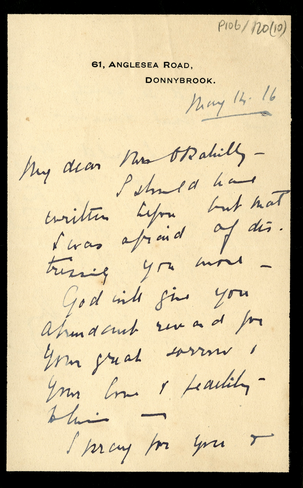 P106/120(10)
61, ANGLESEA ROAD,
DONNYBROOK.
May 14. 16
My dear Mrs O'Rahilly -
I should have
written before but that
I was afraid of dis-
tressing you more -
God will give you
abundant reward for
your great sorrow &
your love & fidelity
to him -
I pray for you &